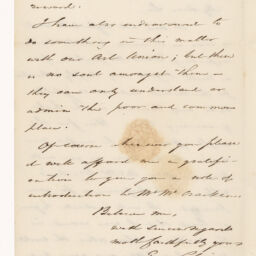 reward.
I have also endeavored to
do something in this matter
with our Art Union; but there
is no soul amongst them —
they can only understand or
admire the poor and common
place.
Of course whenever you please
it will afford me a gratifi-
cation to give you a note of
introduction to Mr. McCracken.
Believe me,
with sincere regards
most faithfully yours